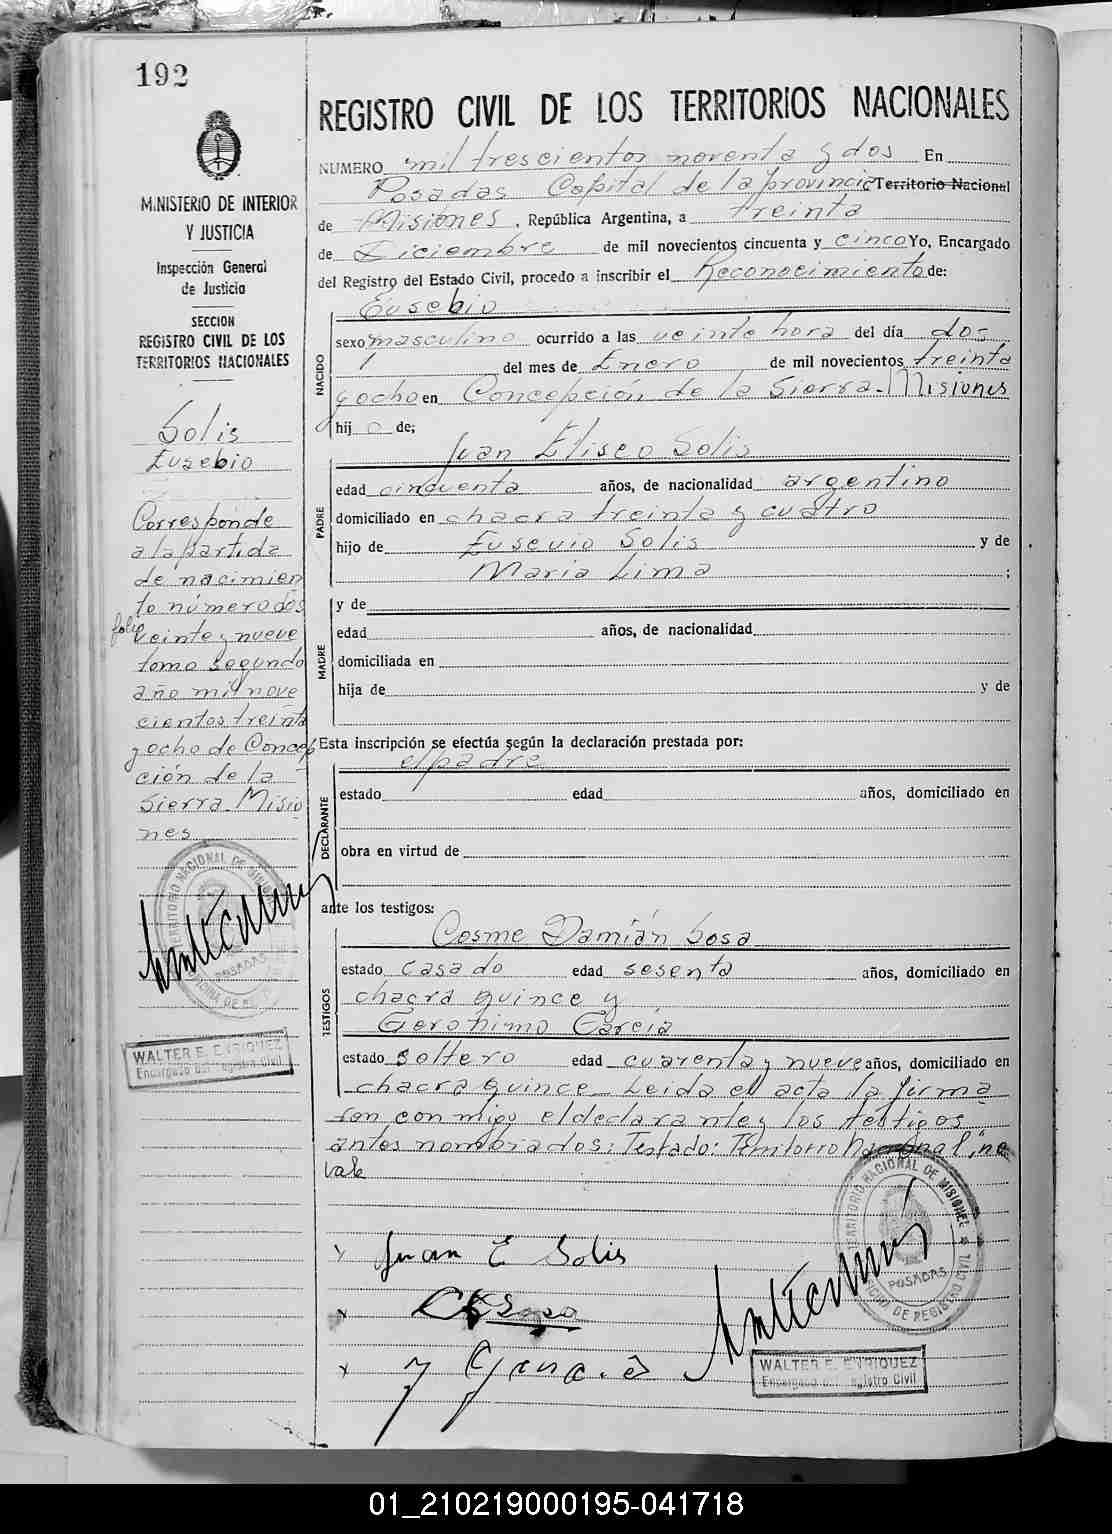 192
MINISTERIO DE INTERIOR
Y JUSTICIA
Inspección General
de Justicia
SECCION
REGISTRO CIVIL DE LOS
TERRITORIOS NACIONALES
Solis
Eusebio
Corresponde
a la partida
de nacimien
to número dos
folio
veinte y nueve
tomo segundo
año mil nove
cientos treinta
y ocho de Concep
ción de la
Sierra Misio
nes
TERRITORIO NACIONAL DE MISIONES
POSADAS
OFICINA DE REGISTRO CIVIL
WALTER E. ENRIQUEZ
Encargado del Registro Civil
REGISTRO CIVIL DE LOS TERRITORIOS NACIONALES
NUMERO mil trescientos noventa y dos En
Posadas Capital de la provincia Territorio Nacional
de Misiones, República Argentina, a treinta
de Diciembre de mil novecientos cincuenta y cinco Yo, Encargado
del Registro del Estado Civil, procedo a inscribir el Reconocimiento de:
Eusebio
NACIDO
sexo masculino ocurrido a las veinte hora del día dos
del mes de Enero de mil novecientos treinta
y ocho en Concepción de la Sierra - Misiones
hij o de;
Juan Eliseo Solis
PADRE
edad cincuenta años, de nacionalidad argentino
domiciliado en chacra treinta y cuatro
hijo de Eusevio Solis y de
Maria Lima ;
MADRE
y de
edad años, de nacionalidad
domiciliada en
hija de y de
Esta inscripción se efectúa según la declaración prestada por:
el padre
DECLARANTE
estado edad años, domiciliado en
obra en virtud de
ante los testigos:
TESTIGOS
Cosme Damián Sosa
estado casado edad sesenta años, domiciliado en
chacra quince y
Geronimo Garcia
estado soltero edad cuarenta y nueve años, domiciliado en
chacra quince Leida el acta la firma
ron con migo el declarante y los testigos
antes nombrados: Testado: Territorio Nacional, no
vale
Juan E Solis
TERRITORIO NACIONAL DE MISIONES
POSADAS
OFICINA DE REGISTRO CIVIL
WALTER E. ENRIQUEZ
Encargado del Registro Civil
01_210219000195-041718